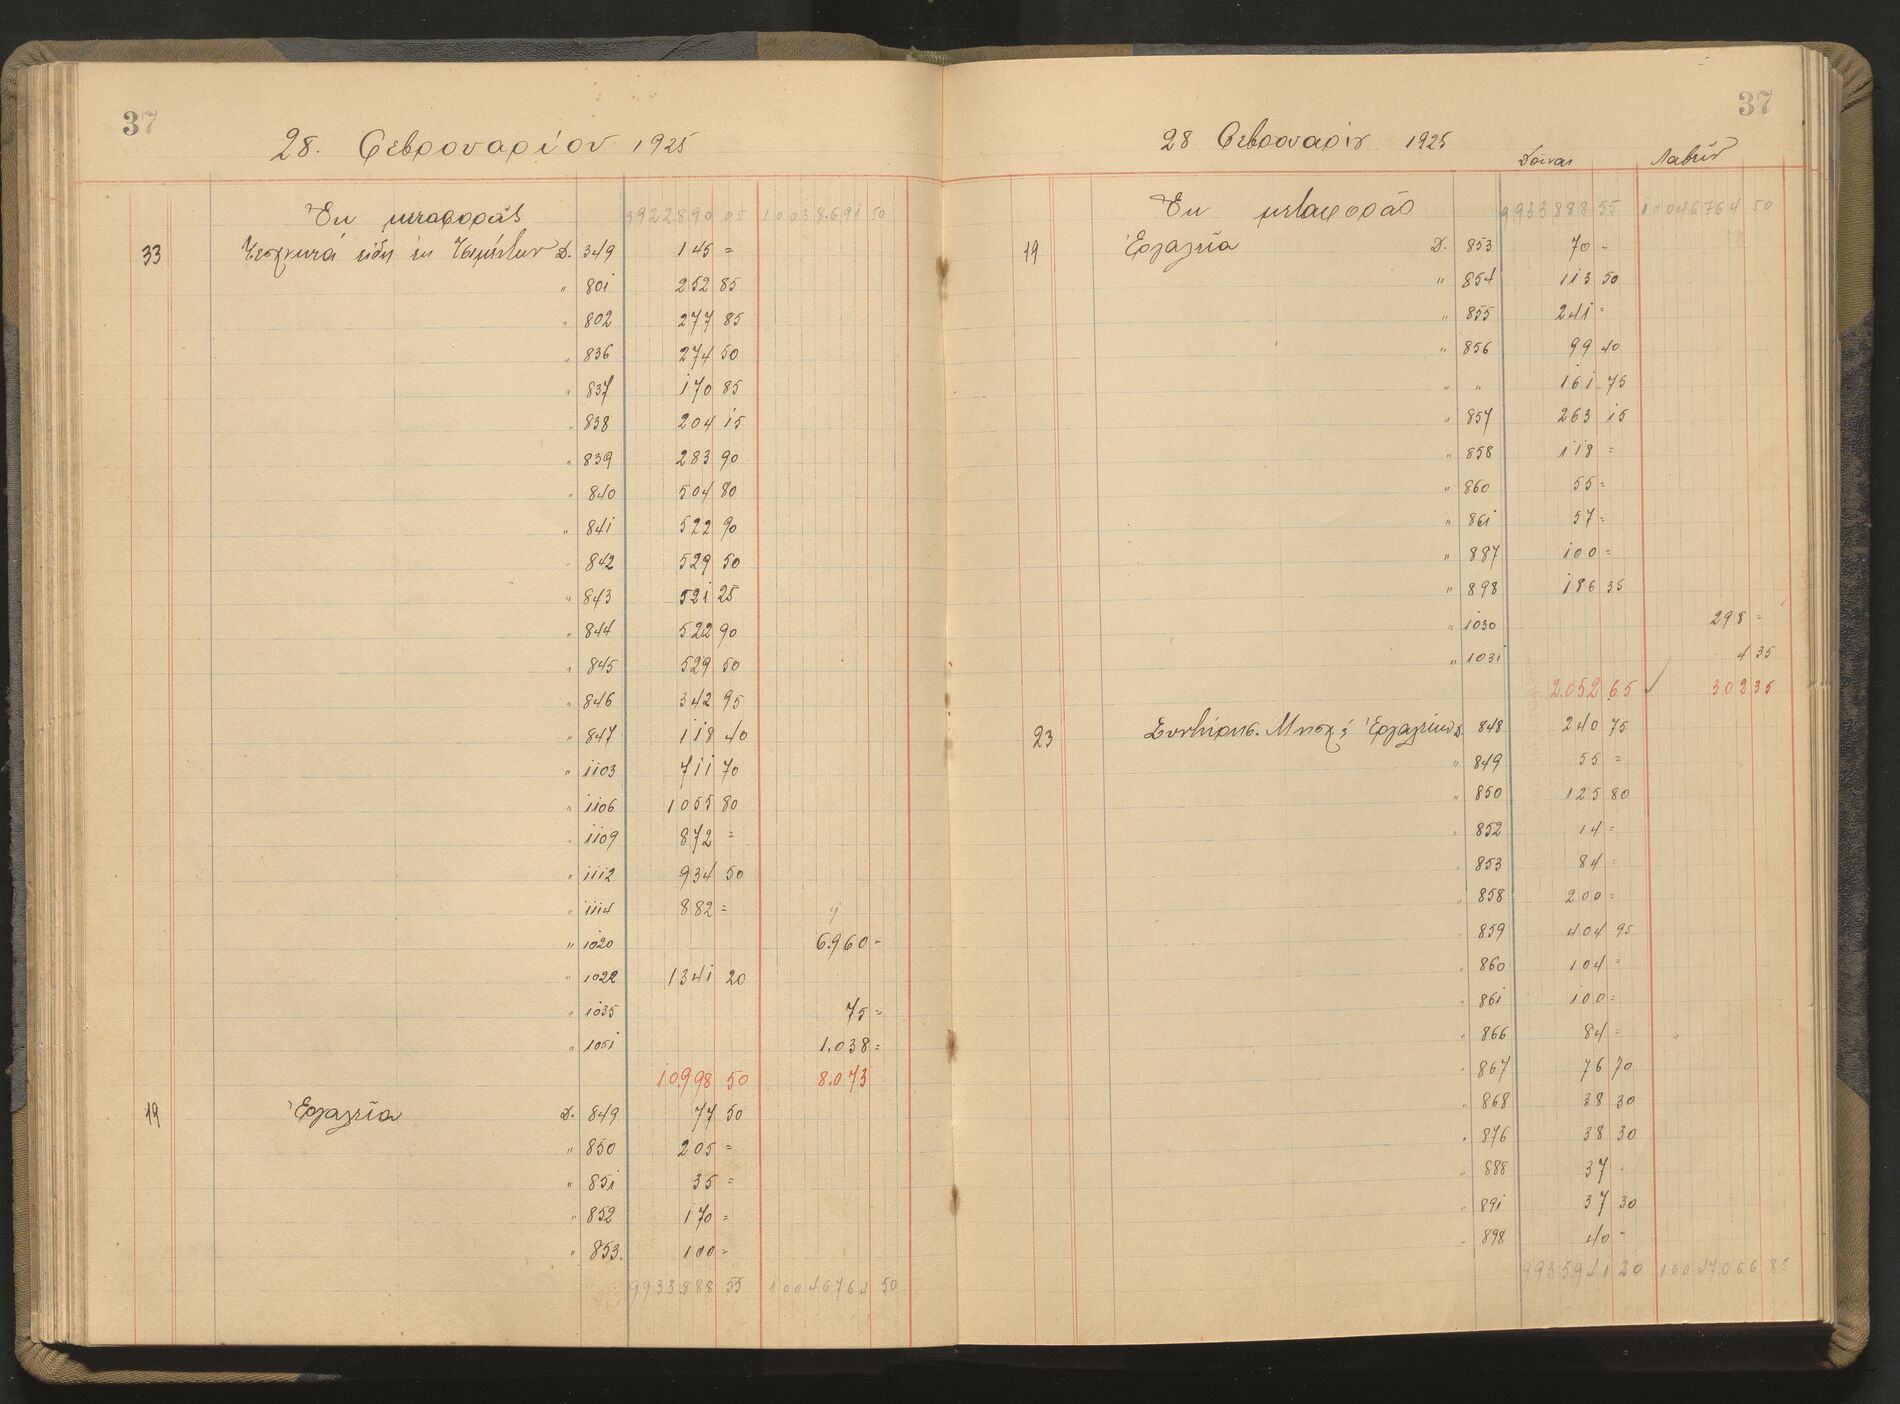 37
28. Φεβρουαρίου 1925
Ἐκ μεταφορᾶς 9922890 05 10038.691 50
33 Τεχνητά εἴδη ἐκ Τσιμέντων Δ. 349 145 =
" 801 252 85
" 802 277 85
" 836 274 50
" 837 170 85
" 838 204 15
" 839 283 90
" 840 504 80
" 841 522 90
" 842 529 50
" 843 521 25
" 844 522 90
" 845 529 50
" 846 342 95
" 847 118 40
" 1103 711 70
" 1106 1055 80
" 1109 872 =
" 1112 934 50
" 1114 882 =
" 1020 6.960 -
" 1022 1341 20
" 1035 75 =
" 1051 1.038 =
10998 50 8.073
19 Ἐργαλεῖα Δ. 849 77 50
" 850 205 =
" 851 35 =
" 852 170 =
" 853. 100 =
9933.888 55 10046764 50
37
28 Φεβρουαρίου 1925
Δοῦναι Λαβεῖν
Ἐκ μεταφορᾶς 9933888 55 10046764 50
19 Ἐργαλεῖα Δ. 853 70 -
" 854 113 50
" 855 241 =
" 856 99 40
" " 161 75
" 857 263 15
" 858 118 =
" 860 55 =
" 861 57 =
" 887 100 =
" 898 186 35
" 1030 298 =
" 1031 4 35
2.052 65 ✓ 302 35
23 Συντήρησ. Μηχ. Ἐργαλείων Δ. 848 240 75
" 849 55 =
" 850 125 80
" 852 14 =
" 853 84 =
" 858 200 =
" 859 404 95
" 860 104 =
" 861 100 =
" 866 84 =
" 867 76 70
" 868 38 30
" 876 38 30
" 888 37 =
" 891 37 30
" 898 40 -
9935941 20 10047066 85